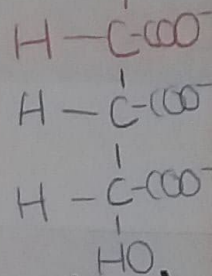 H-C-COO⁻
H-C-COO⁻
H-C-COO⁻
HO